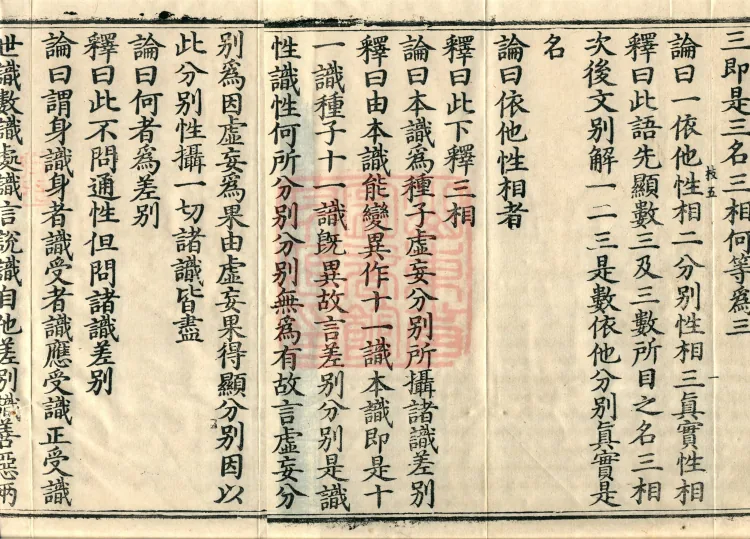 三即是三名三相何等爲三
論曰一依他性相二分別性相三眞實性相
釋曰此語先顯數三及三數所目之名三相
次後文別解一二三是數依他分別眞實是
名
論曰依他性相者
釋曰此下釋三相
論曰本識爲種子虛妄分別所攝諸識差別
釋曰由本識能變異作十一識本識即是十
一識種子十一識既異故言差別分別是識
性識性何所分別分別無爲有故言虛妄分
別爲因虛妄爲果由虛妄果得顯分別因以
此分別性攝一切諸識皆盡
論曰何者爲差別
釋曰此不問通性但問諸識差別
論曰謂身識身者識受者識應受識正受識
世識數識處識言說識自他差別識善惡兩